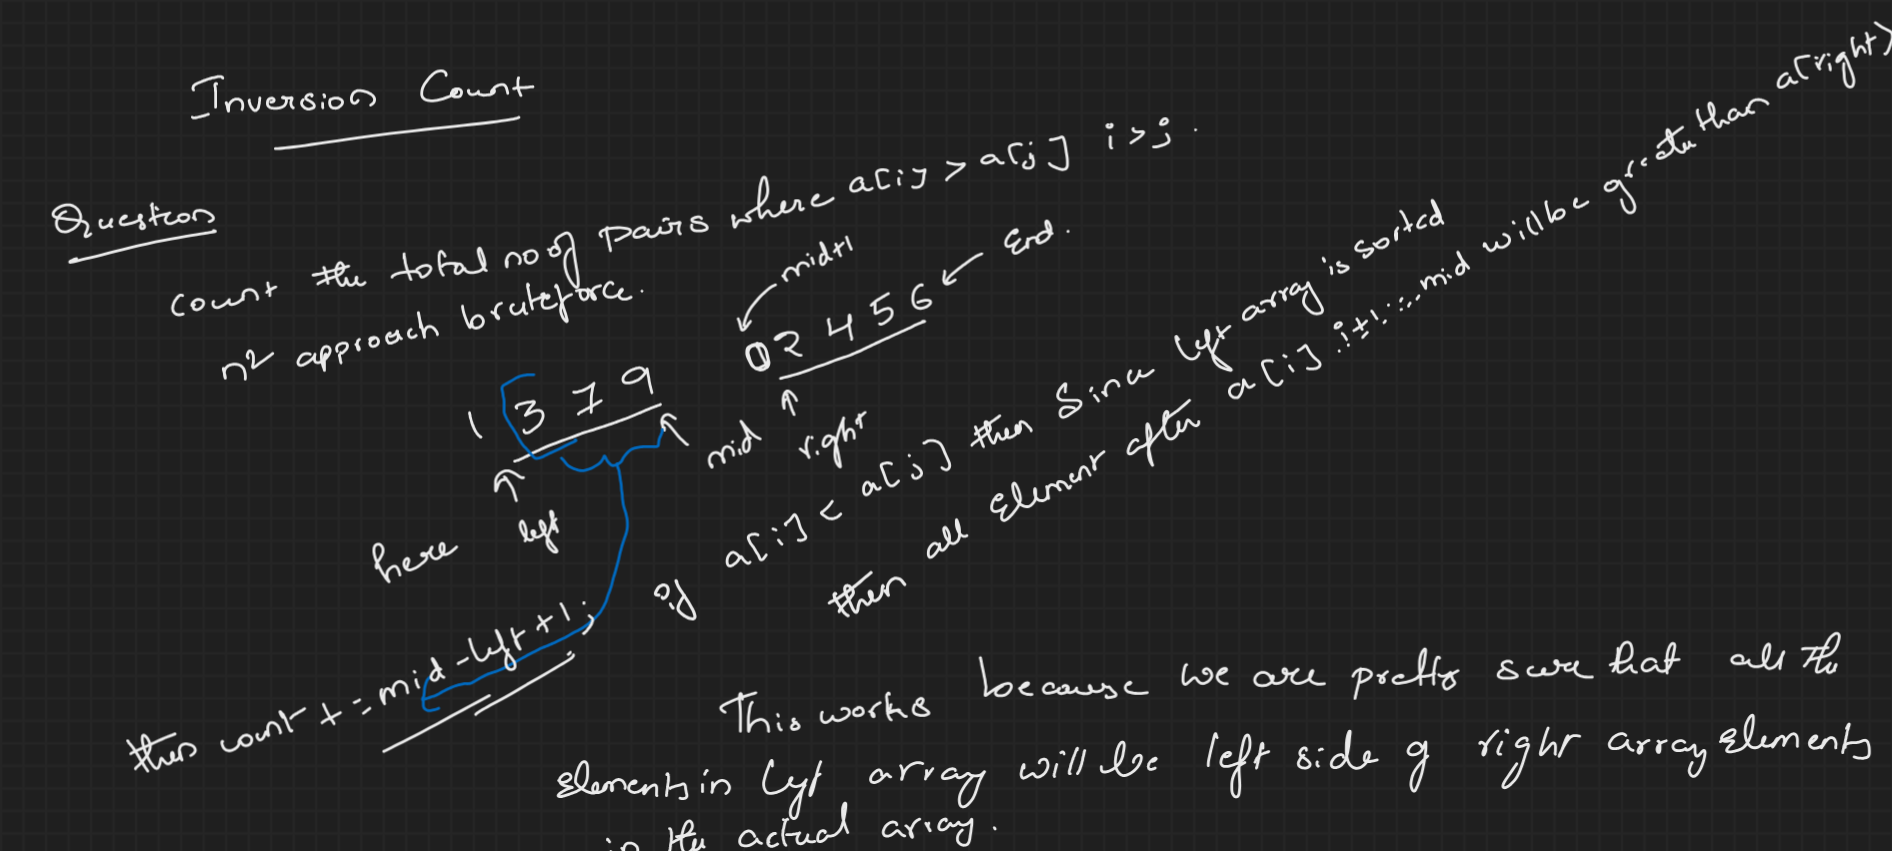 Inversion Count
Question
count the total no of pairs where a[i] > a[j] i>j.
n² approach bruteforce.
mid+1
End.
1 3 7 9
0 2 4 5 6
mid
right
here left
if a[i] < a[j] then Since left array is sorted
then all Element after a[i] .i+1.....mid will be greater than a[right]
then count += mid-left+1;
This works because we are pretty sure that all the
elements in left array will be left side of right array Elements
in the actual array.